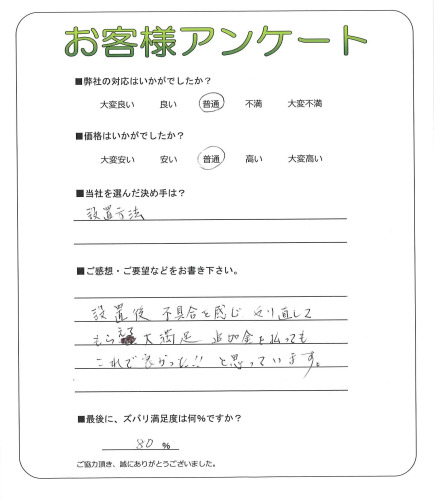 お客様アンケート
■弊社の対応はいかがでしたか？
大変良い 良い 普通 不満 大変不満
■価格はいかがでしたか？
大変安い 安い 普通 高い 大変高い
■当社を選んだ決め手は？
設置方法
■ご感想・ご要望などをお書き下さい。
設置後 不具合を感じ やり直して
もらえて 大満足 追加金を払っても
これで良かった!! と思っています。
■最後に、ズバリ満足度は何％ですか？
80 %
ご協力頂き、誠にありがとうございました。